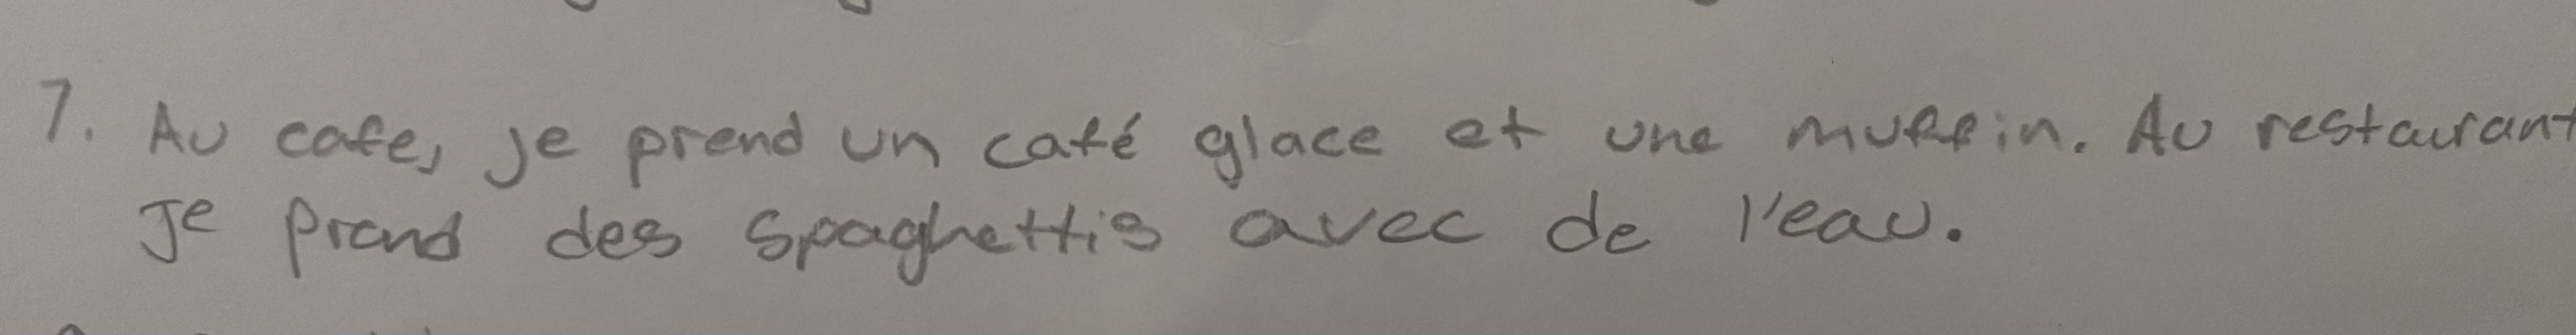 7. Au cafe, je prend un café glace et une muffin. Au restaurant
je prend des spaghettis avec de l'eau.